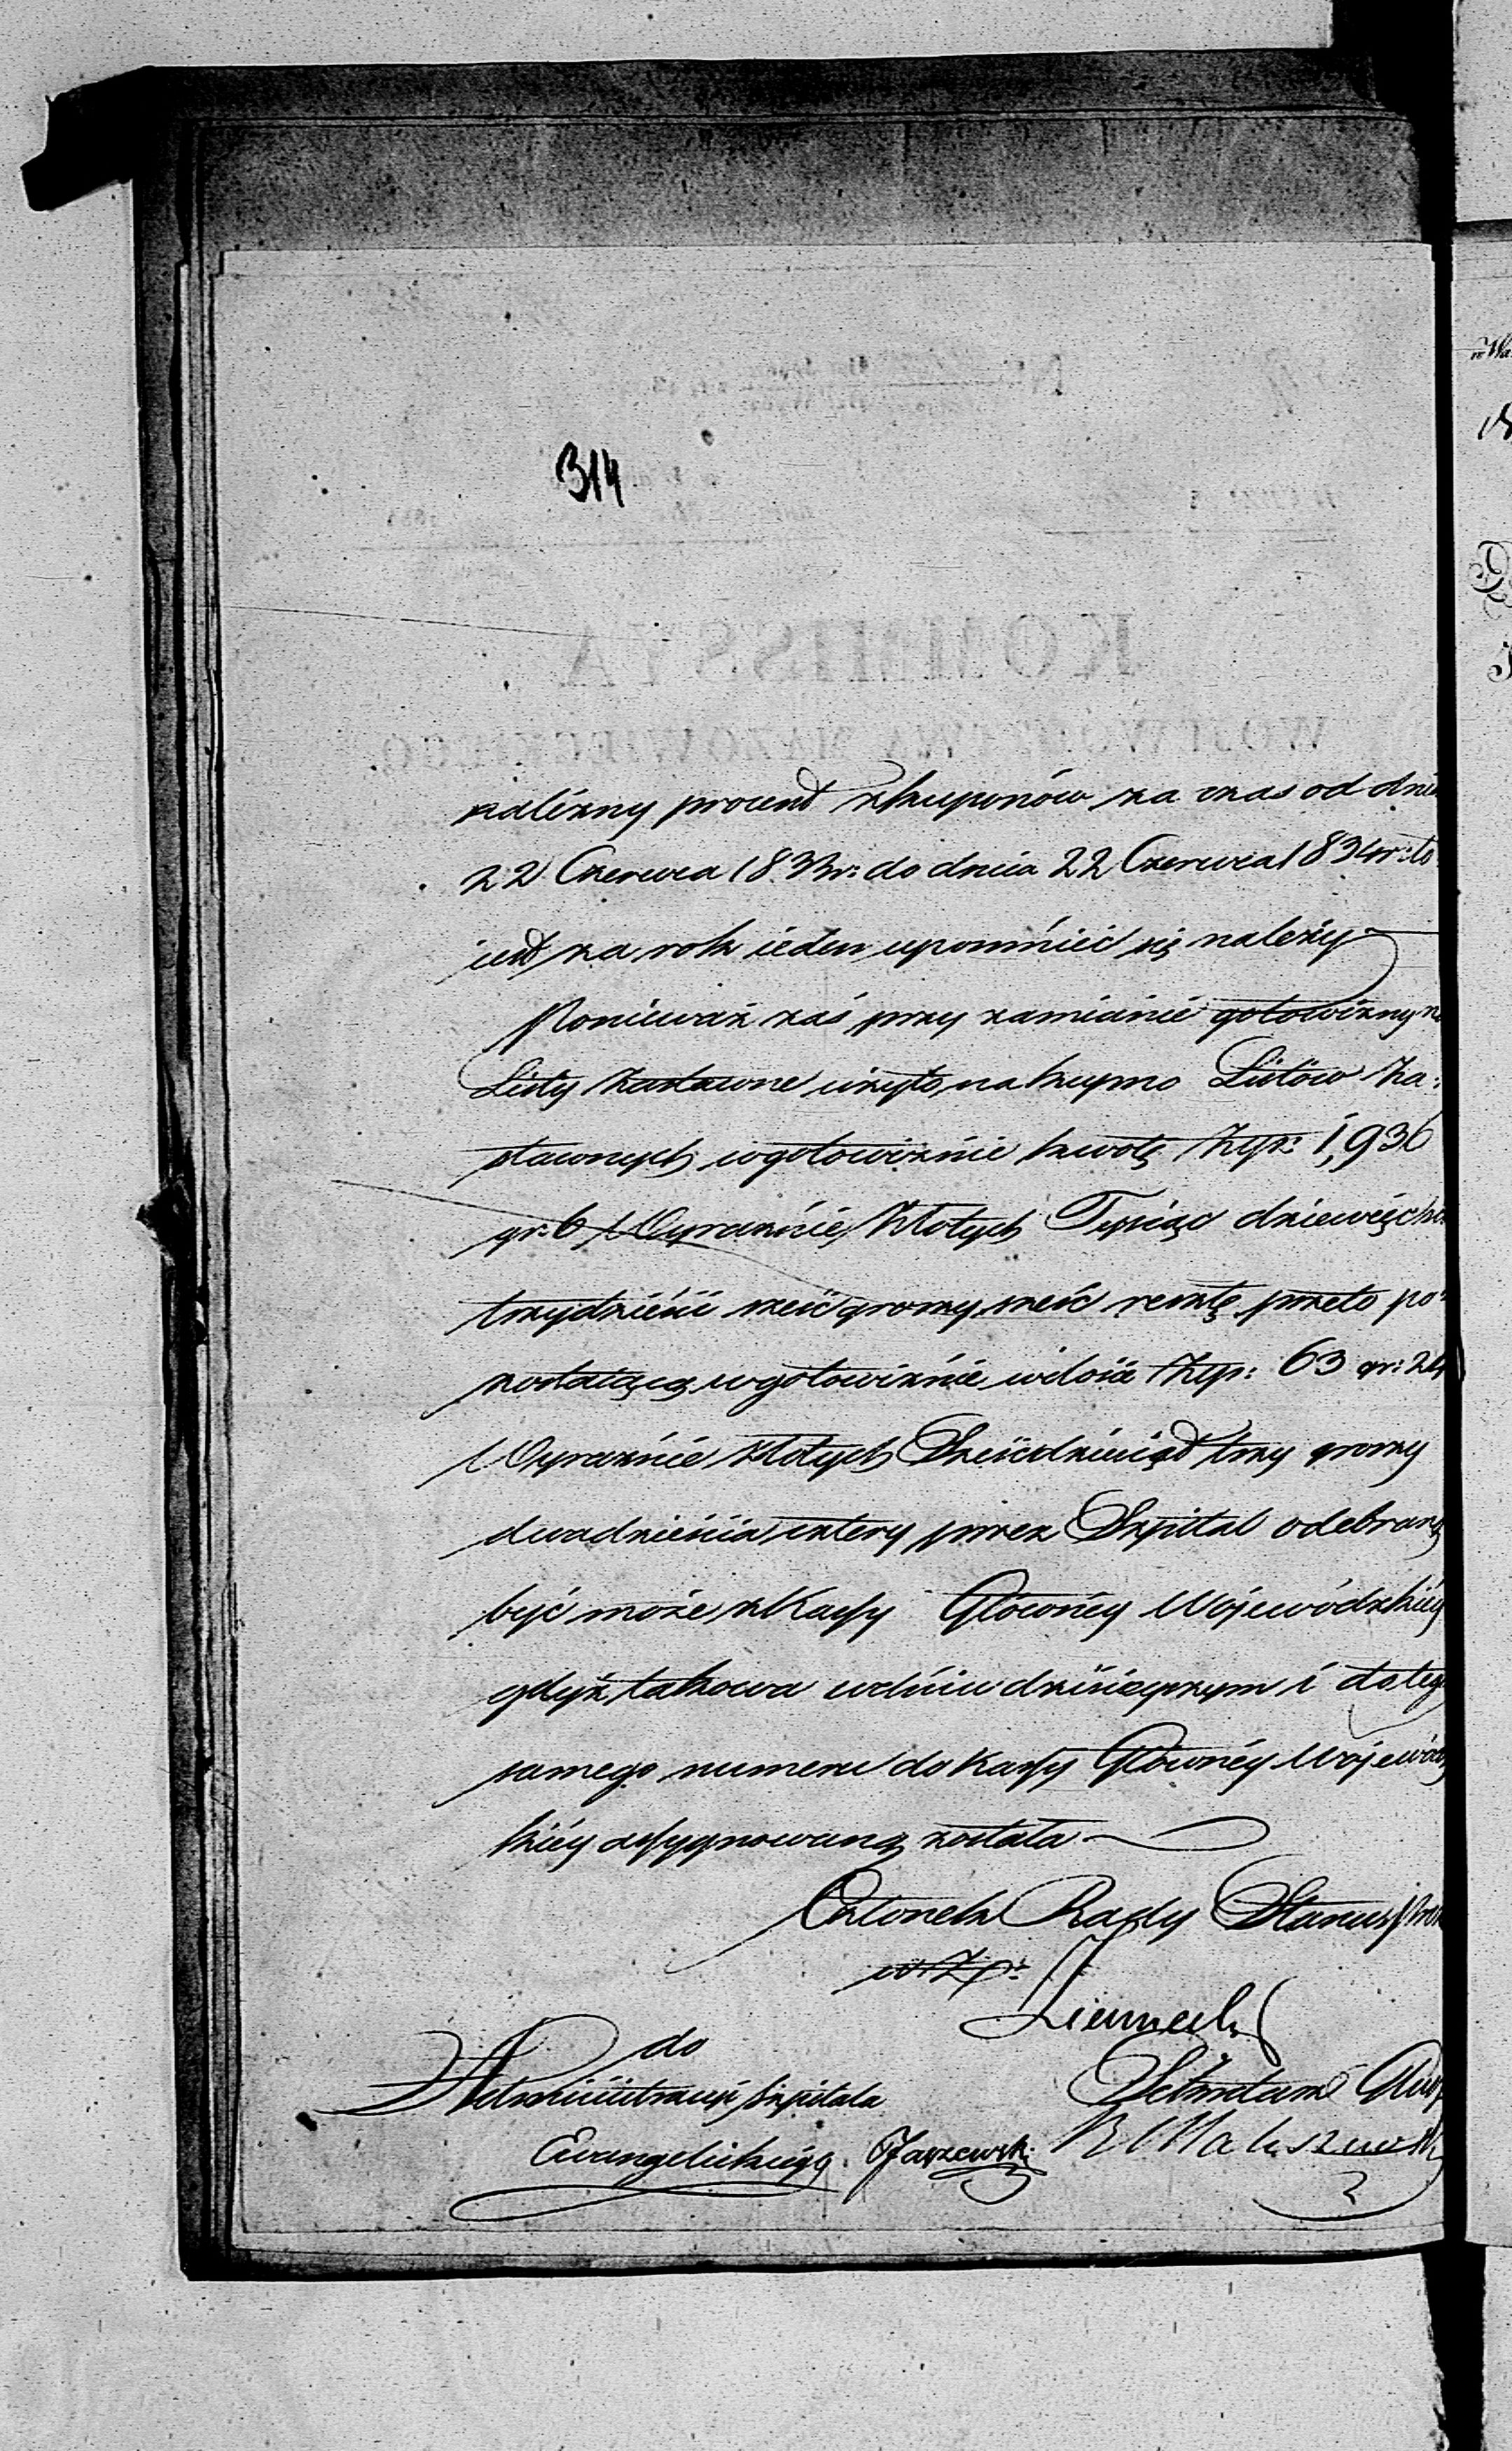 314
należny procent z kuponów za czas od dnia
22 Czerwca 1833 r: do dnia 22 Czerwca 1834 r: to
iest za rok ieden upomnieć się należy
Ponieważ zaś przy zamianie gotowizny na
Listy Zastawne użyto na kupno Listów Za:
stawnych w gotowiznie kwotę Złp: 1,936
gr: 6 Wyraźnie Złotych Tysiąc dziewięćset
trzydzieści sześć groszy sześć resztę przeto po:
zostaiącą w gotowiznie w ilości Złp: 63 gr: 24
Wyraźnie Złotych Sześćdziesiąt trzy groszy
dwadzieścia cztery przez Szpital odebraną
być może z Kassy Głównéy Wojewódzkiéy
gdyż takowa w dniu dzisieyszym i do tego
samego numeru do Kassy Głównéy Wojewódz
kiéy assygnowaną została
Członek Rady Stanu Prezes
w Z p:
do
Administracyi Szpitala
Sekretarz
Ewangelickiego. Jaszewski